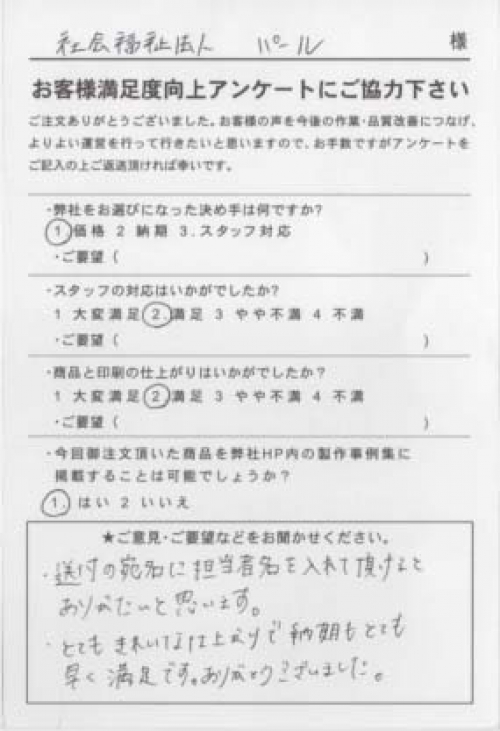 社会福祉法人 パール 様
お客様満足度向上アンケートにご協力下さい
ご注文ありがとうございました。お客様の声を今後の作業・品質改善につなげ、
よりよい運営を行って行きたいと思いますので、お手数ですがアンケートを
ご記入の上ご返送頂ければ幸いです。
・弊社をお選びになった決め手は何ですか?
1 価格 2 納期 3.スタッフ対応
・ご要望 ( )
・スタッフの対応はいかがでしたか?
1 大変満足 2 満足 3 やや不満 4 不満
・ご要望 ( )
・商品と印刷の仕上がりはいかがでしたか?
1 大変満足 2 満足 3 やや不満 4 不満
・ご要望 ( )
・今回御注文頂いた商品を弊社HP内の製作事例集に
掲載することは可能でしょうか?
1. はい 2 いいえ
★ご意見・ご要望などをお聞かせください。
・送付の宛名に担当者名を入れて頂けると
ありがたいと思います。
・とてもきれいな仕上がりで納期もとても
早く満足です。ありがとうございました。